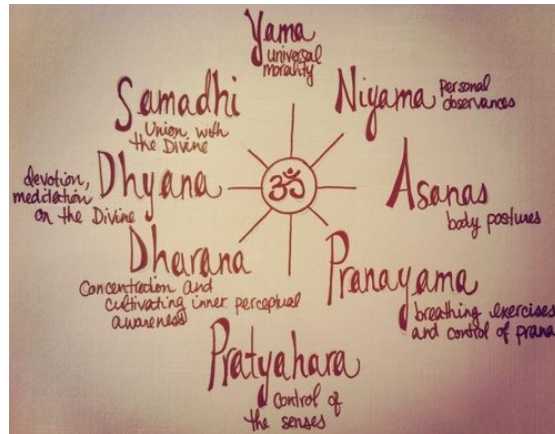 Yama
universal
morality
Niyama personal
observances
Asanas
body postures
Pranayama
breathing exercises
and control of prana
Pratyahara
control of
the senses
Dharana
concentration and
cultivating inner perceptual
awareness
Dhyana
devotion,
meditation
on the Divine
Samadhi
Union with
the Divine
ॐ